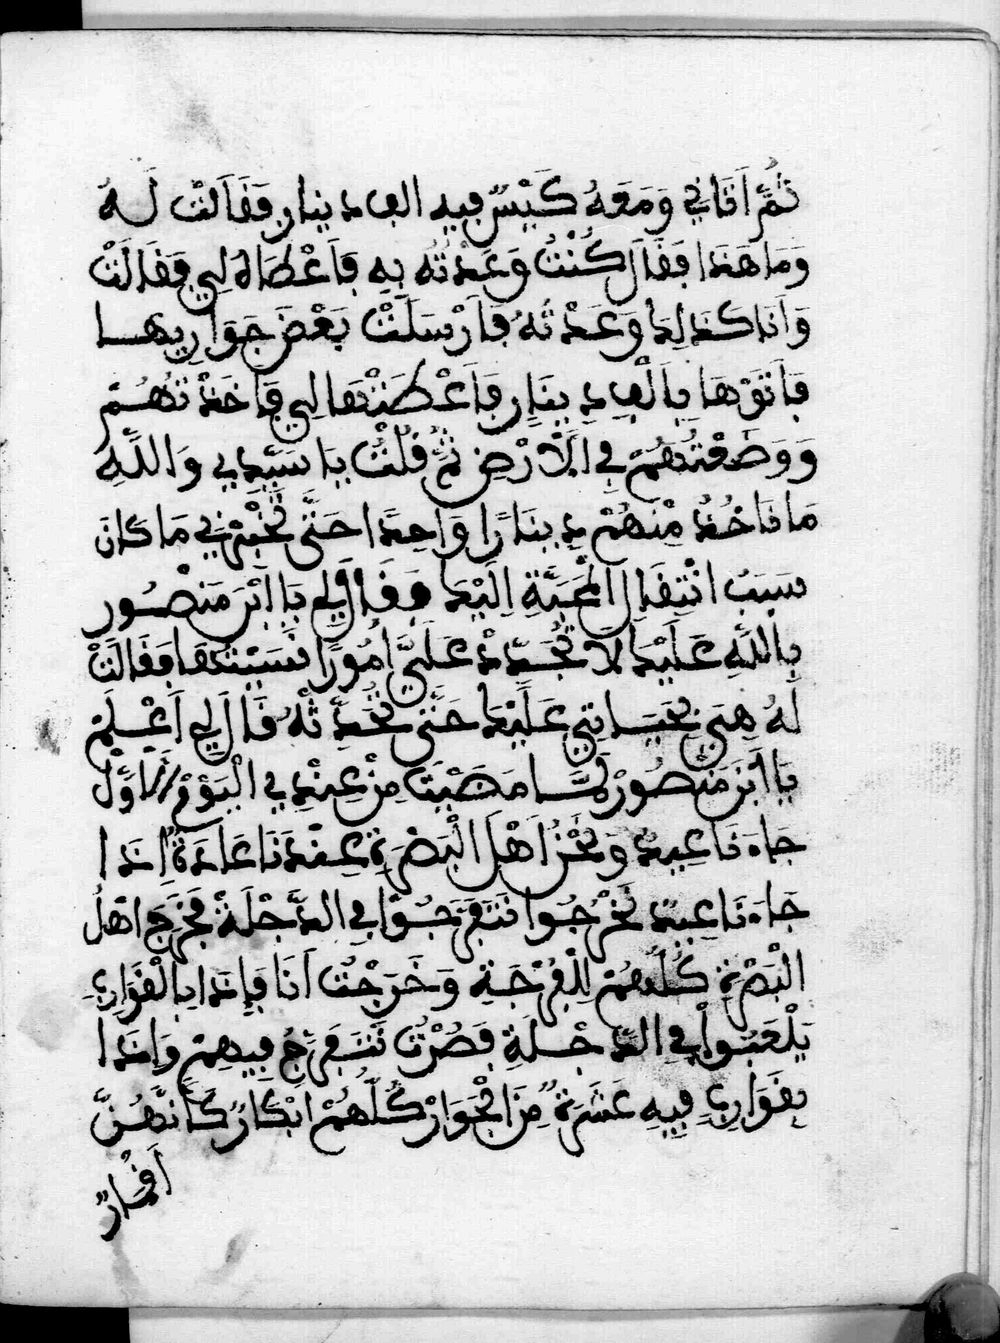 ثُمَّ اَتَانِي وَمَعَهُ كَيْسٌ فِيهِ الف دينار فَقَالَتْ لَهُ
وَمَا هَذَا فَقَالَ كُنْتُ وَعَدْتُه بِهِ فَاَعْطَاهُ لِي فَقَالَتْ
وَاَنَا كَذَلِكَ وَعَدْتُهُ فَاَرْسَلَتْ بَعْضَ جَوَارِيهَا
فَاَتَوْهَا بِاَلْفِ دِينَارٍ فَاَعْطَتْهَا لِي فَاَخَذْتُهُمْ
وَوَضَعْتُهُمْ فِي الْاَرْضِ ثُمَّ قُلْتُ يَا سَيِّدِي وَاللَّهِ
مَا نَاخُذُ مِنْهُمْ دِينَارًا وَاحِدًا حَتَّى تُخْبِرَنِي مَا كَانَ
سَبَبُ انْتِقَالِ الْمَحَبَّةِ اِلَيْكَ فَقَالَ لِي يَا ابْنَ مَنْصُور
بِاللَّهِ عَلَيْكَ لَا تُجَدِّدْ عَلَيَّ اُمُورًا نَسَيْتُهَا فَقَالَتْ
لَهُ هِيَ بِحَيَاتِي عَلَيْكَ حَتَّى تُحَدِّثَهُ قَالَ لِي اَعْلَمْ
يَا ابْنَ مَنْصُورْ لَمَّا مَضَيْتَ مِنْ عِنْدِي فِي الْيَوْمِ الْاَوَّلْ
جَاءَنَا عِيدٌ وَنَحْنُ اَهْلَ الْبَصْرَةِ عِنْدَنَا عَادَةٌ اِذَا
جَاءَنَا عِيدٌ نَخْرُجُوا نَتَفَرَّجُوا فِي الدَّجْلَةْ فَخَرَجَ اهْلُ
الْبَصْرَةِ كُلُّهُمْ لِلْفُرْجَةِ وَخَرَجْتُ اَنَا فَاِذَا بِالْقَوَارِبِ
يَلْعَبُوا فِي الدَّجْلَةِ فَصُرْتُ نَتَفَرَّجُ فِيهِمْ وَاِذَا
بِقَوَارِبِ فِيهِ عَشَرَةٌ مِنَ الْجَوَارْ كُلُّهُمْ اَبْكَارٌ كَاَنَّهُنَّ
اَقْمَارٌ